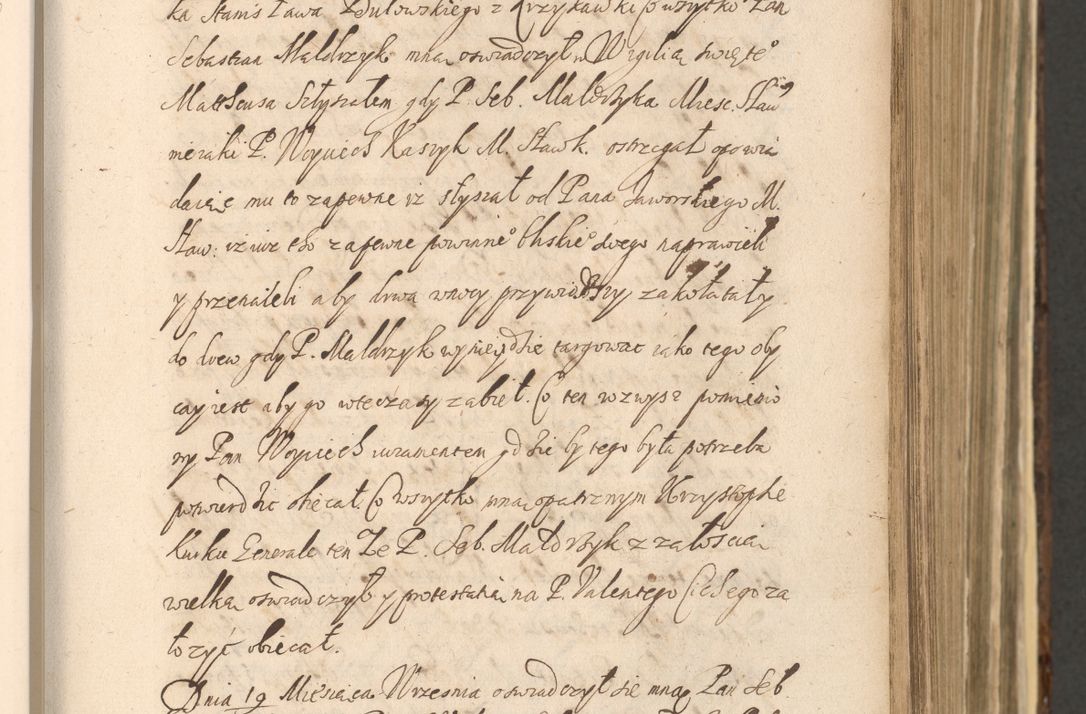 ka Stanisława Zdulowskiego z Krzykawki Co wszytko Pan
Sebastian Maldrzyk mną oswiadczył w Wigilią swięte°
Mattheusa Słyszałem gdy P. Seb. Maldrzyka Miesc. Sław
nieraki P. Woyciech Kaszyk M. Sławk. ostrzegał opowia
daiąc mu to zapewne iz słyszał od Pana Jaworskiego M.
Sław: iz iuz zapewne powinne° bliskie° swego naprawieli
y przenaieli aby drwa w nocy przywiozszy zakołatały
do drew gdy P. Maldrzyk wynieydzie targować iako tego oby
czay iest aby go wteczasy zabieł. Co ten wzwysz pomienio
ny Pan Woyciech iuramentem gdzie by tego była potrzeba
potwierdzic obiecał. Co wszytko mną opatrznym Krzysztophe
Kurku Generale ten Ze P. Seb. Małdrzyk z załoscią
wielką oswiadczył y protestatią na P. Valentego za
łozyć obiecał.
Dnia 19 Miesiąca Wrzesnia oswiadczył sie mną Pan Seb.